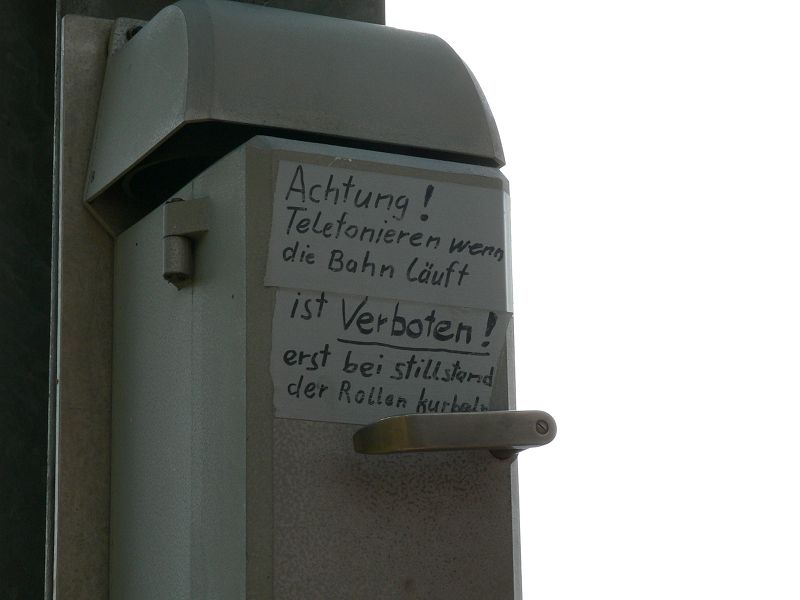 Achtung!
Telefonieren wenn
die Bahn läuft
ist Verboten!
erst bei stillstand
der Rollen kurbeln